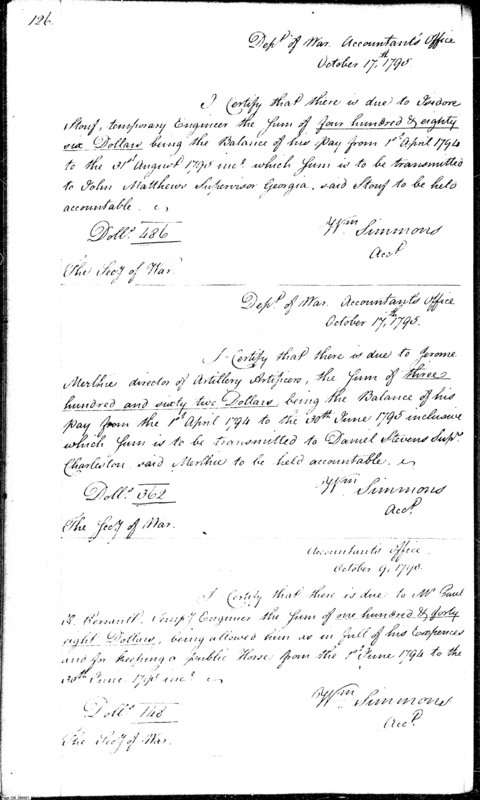 126.
Dept. of War. Accountant's Office
October 17th, 1795
I Certify that there is due to Isidore
Stouf, temporary Engineer the Sum of four hundred & eighty
six Dollars being the Balance of his pay from 1st April 1794
to the 31st August 1795 incl. which Sum is to be transmitted
to John Matthews Supervisor Georgia, said Stouf to be held
accountable.
Dolls. 486
Wm Simmons
Acct.
The Secy of War.
Dept. of War. Accountant's Office
October 17th, 1795.
I Certify that there is due to Jerome
Merthie director of Artillery Artificers, the Sum of three
hundred and sixty two Dollars, being the Balance of his
pay from the 1st April 1794 to the 30th June 1795 inclusive
which Sum is to be transmitted to Daniel Stevens Supr.
Charleston, said Merthie to be held accountable.
Dolls. 362
Wm Simmons
Acct.
The Secy of War.
Accountant's Office
October 9, 1795.
I Certify that there is due to Mr. Paul
Perrault, Tempy Engineer the Sum of one hundred & forty
eight Dollars, being allowed him as in full of his Expences
and for keeping a public Horse from the 1st June 1794 to the
30th June 1795 incl.
Dolls. 148
Wm Simmons
Acct.
The Secy of War.